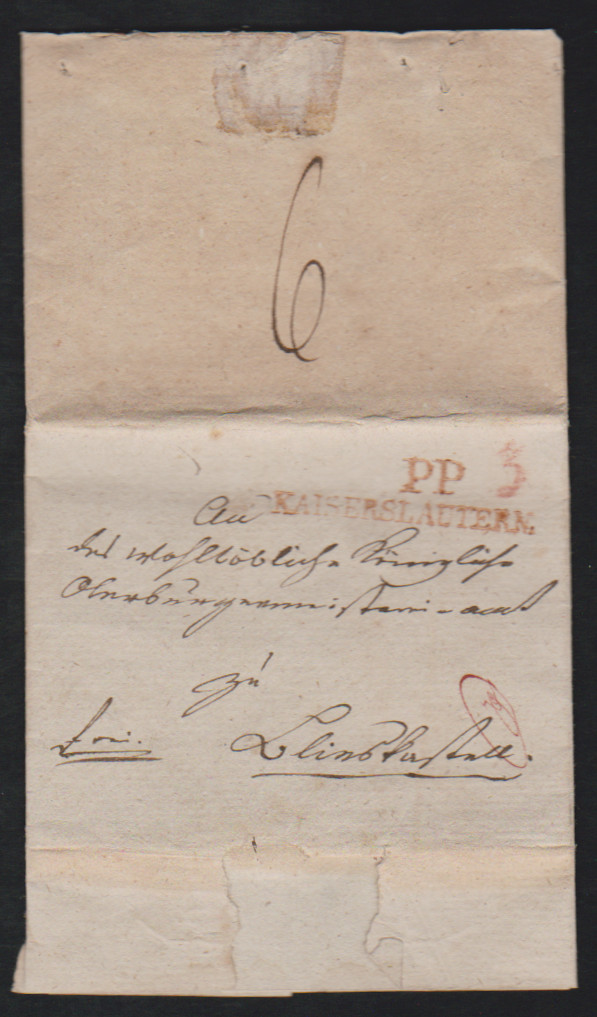 6
PP 3
KAISERSLAUTERN
An
das wohllöbliche Königliche
Oberbürgermeisterei-amt
zu
frei. Blieskastell.